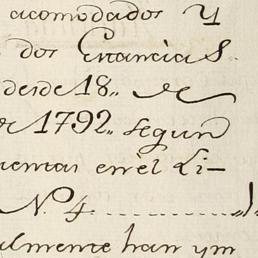 acomodados Y
dos Estancias
desde 18,, de
de 1792,, segun
uentas en èl Li-
Nº 4.............
almente han ym